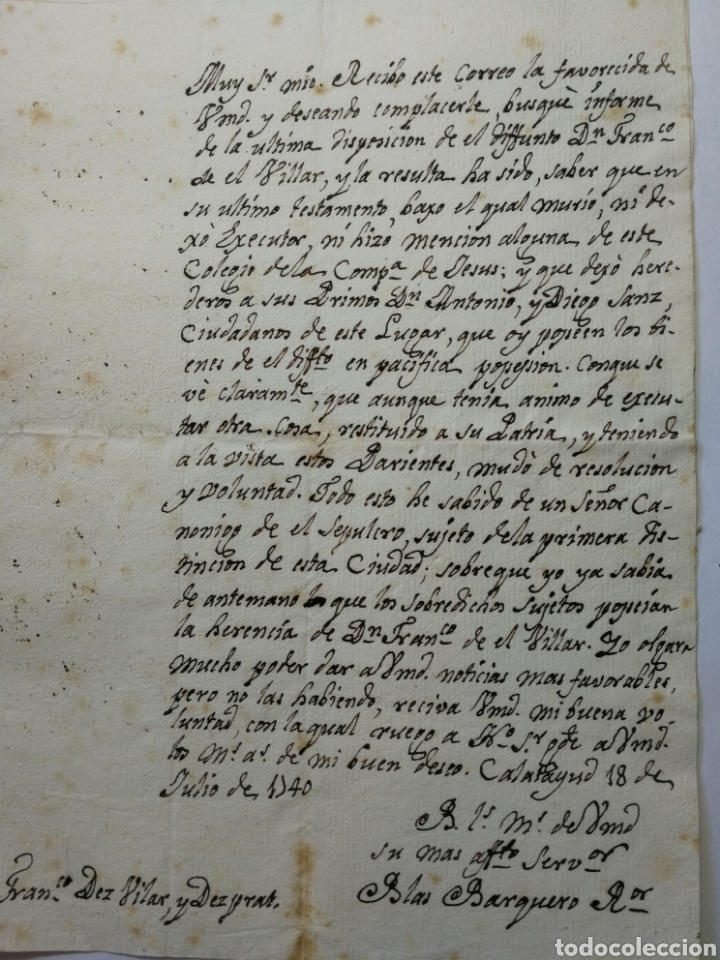 Muy S.r mio. Recibo este Correo la favorecida de
Vmd. y deseando complacerle, busquè informe
de la ultima disposicion de el diffunto Dn Fran.co
de el Villar, y la resulta ha sido, saber que en
su ultimo testamento, baxo el qual murió, ni de-
xò Executor, ni hizo mencion alguna de este
Colegio de la Comp.a de Jesus; y que dexò here-
deros a sus Primos Dn Antonio, y Diego Sanz,
Ciudadanos de este Lugar, que oy posseen los bi-
enes de el diff.to en pacifica possession. Conque se
vè claram.te, que aunque tenia animo de execu-
tar otra Cosa, restituido a su Patria, y teniendo
a la vista estos Parientes, mudò de resolucion
y voluntad. Todo esto he sabido de un Señor Ca-
nonigo de el Sepulcro, sujeto de la primera dis-
tincion de esta Ciudad; sobreque yo ya sabia
de antemano que los sobredichos sujetos posseian
la herencia de Dn Fran.co de el Villar. Yo olgara
mucho poder dar a Vmd. noticias mas favorables,
pero no las habiendo, reciva Vmd. mi buena vo-
luntad, con la qual ruego a N.o S.r g.de a Vmd.
los m.s a.s de mi buen deseo. Calatayud 18 de
Julio de 1740
B. l.s m.s de Vmd
su mas aff.to Serv.or
Blas Barquero R.or
Fran.co Dez Vilar, y Dezprat.
todocoleccion